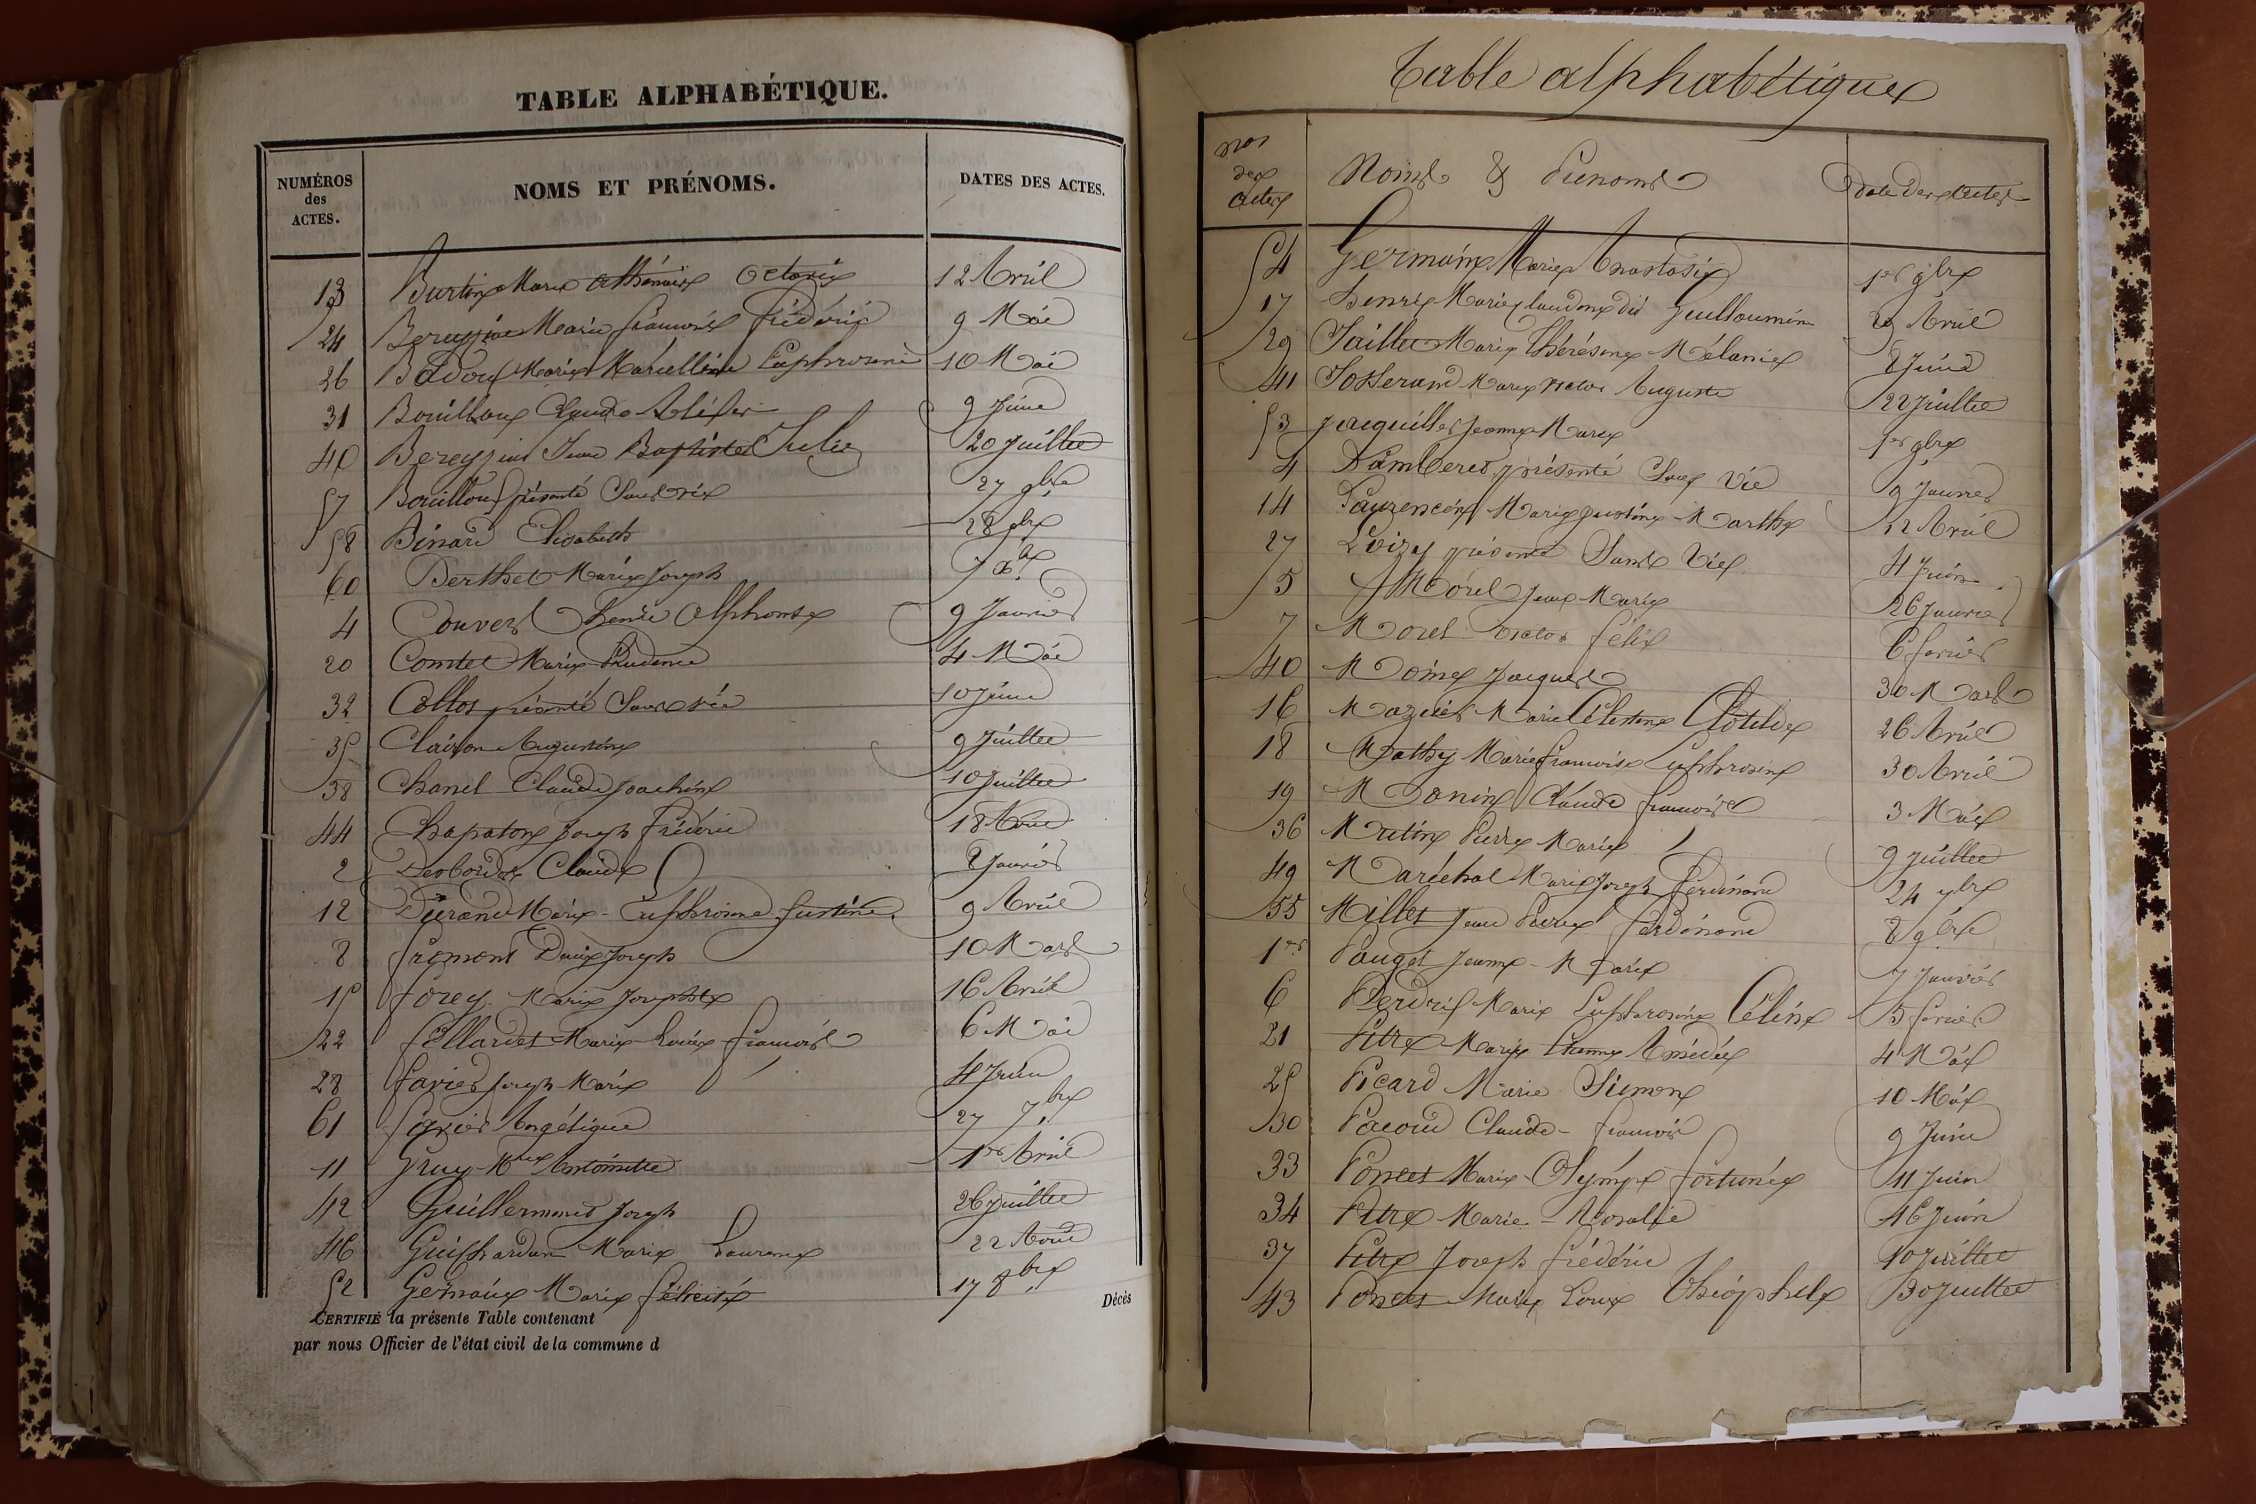 TABLE ALPHABÉTIQUE.
NUMÉROS des ACTES. NOMS ET PRÉNOMS. DATES DES ACTES.
13 Burtin Marie Athénaïse Octavie 12 Avril
24 Bereyziat Marie François Frédéric 9 Mai
26 Badoux Marie Marcelline Euphrosine 10 Mai
31 Bouilloux Claude 9 Juin
40 Bereyziat Jean Baptiste Julie 20 Juillet
57 Bouilloux présenté Sans vie 27 9bre
58 Bénard Elisabeth 28 9bre
60 Berthet Marie Joseph 7 Xbre
4 Couvert Henri Alphonse 9 Janvier
20 Comtet Marie Prudence 4 Mai
32 Collos présenté Sans vie 10 Juin
35 Clairon Augustine 9 Juillet
38 Chanel Claude Joachim 10 Juillet
44 Chapaton Joseph Frédéric 18 Août
2 Desbordes Claude 8 Janvier
12 Durand Marie-Euphrosine Justine 9 Avril
8 Fremont Denix Joseph 10 Mars
15 Forey Marie Josephte 16 Avril
22 Fellardet Marie-Louise François 6 Mai
28 Favier Joseph Marie 4 Juin
61 Favier Angélique 27 Xbre
11 Gruy Mie Antoinette 1er Avril
42 Guillermet Joseph 26 Juillet
46 Guichardan Marie Laurence 22 Août
52 Germain Marie Félicité 17 8bre
Décès
CERTIFIÉ la présente Table contenant
par nous Officier de l'état civil de la commune d
Table alphabétique
Nos des actes Noms & Prénoms Date des actes
54 Germain Marie Anastasie 1er 9bre
17 Henri Marie Claudine dit Guillaumin 29 Avril
29 Jaillet Marie Thérésine Mélanie 8 Juin
41 Josserand Marie Victor Auguste 22 Juillet
53 Jacquillet Jeanne Marie 1er 9bre
4 Lamberet présenté Sans Vie 9 Janvier
14 Laurencin Marie Justine Marthe 12 Avril
27 Loizy présenté Sans Vie 4 Juin
5 Morel Jean Marie 26 Janvier
7 Morel Victor Félix 6 Février
40 Moine Jacques 30 Mars
16 Mazuir Marie Célestine Clotilde 26 Avril
18 Mathy Marie Françoise Euphrosine 30 Avril
19 Monin Claude François 3 Mai
36 Mutin Pierre Marie 9 Juillet
49 Maréchal Marie Joseph Ferdinand 24 7bre
55 Millet Jean Pierre Ferdinand 8 9bre
1er Pauget Jeanne-Marie 7 Janvier
6 Perdrix Marie Euphrosine Céline 5 Février
21 Pitre Marie Etienne Amédée 4 Mai
25 Picard Marie Simon 10 Mai
30 Pacoud Claude-François 9 Juin
33 Poncet Marie-Olympe Fortunée 11 Juin
34 Pitre Marie-Rosalie 16 Juin
37 Pitre Joseph Frédéric 10 Juillet
43 Poncet Marie Louise Théophile 30 Juillet